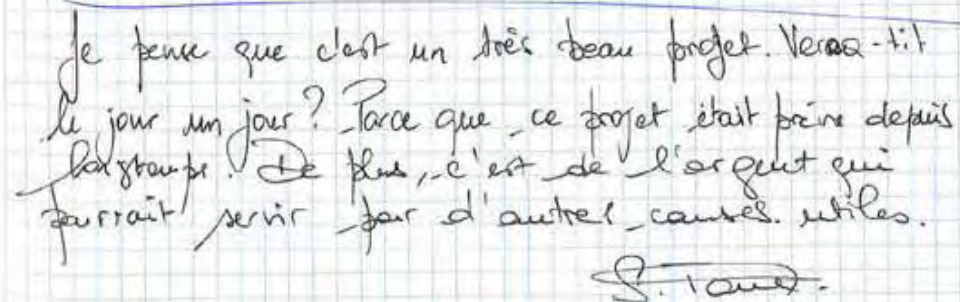 Je pense que c'est un très beau projet. Verra-t-il
le jour un jour? Parce que ce projet était prévu depuis
longtemps. De plus, c'est de l'argent qui
pourrait servir pour d'autres causes utiles.